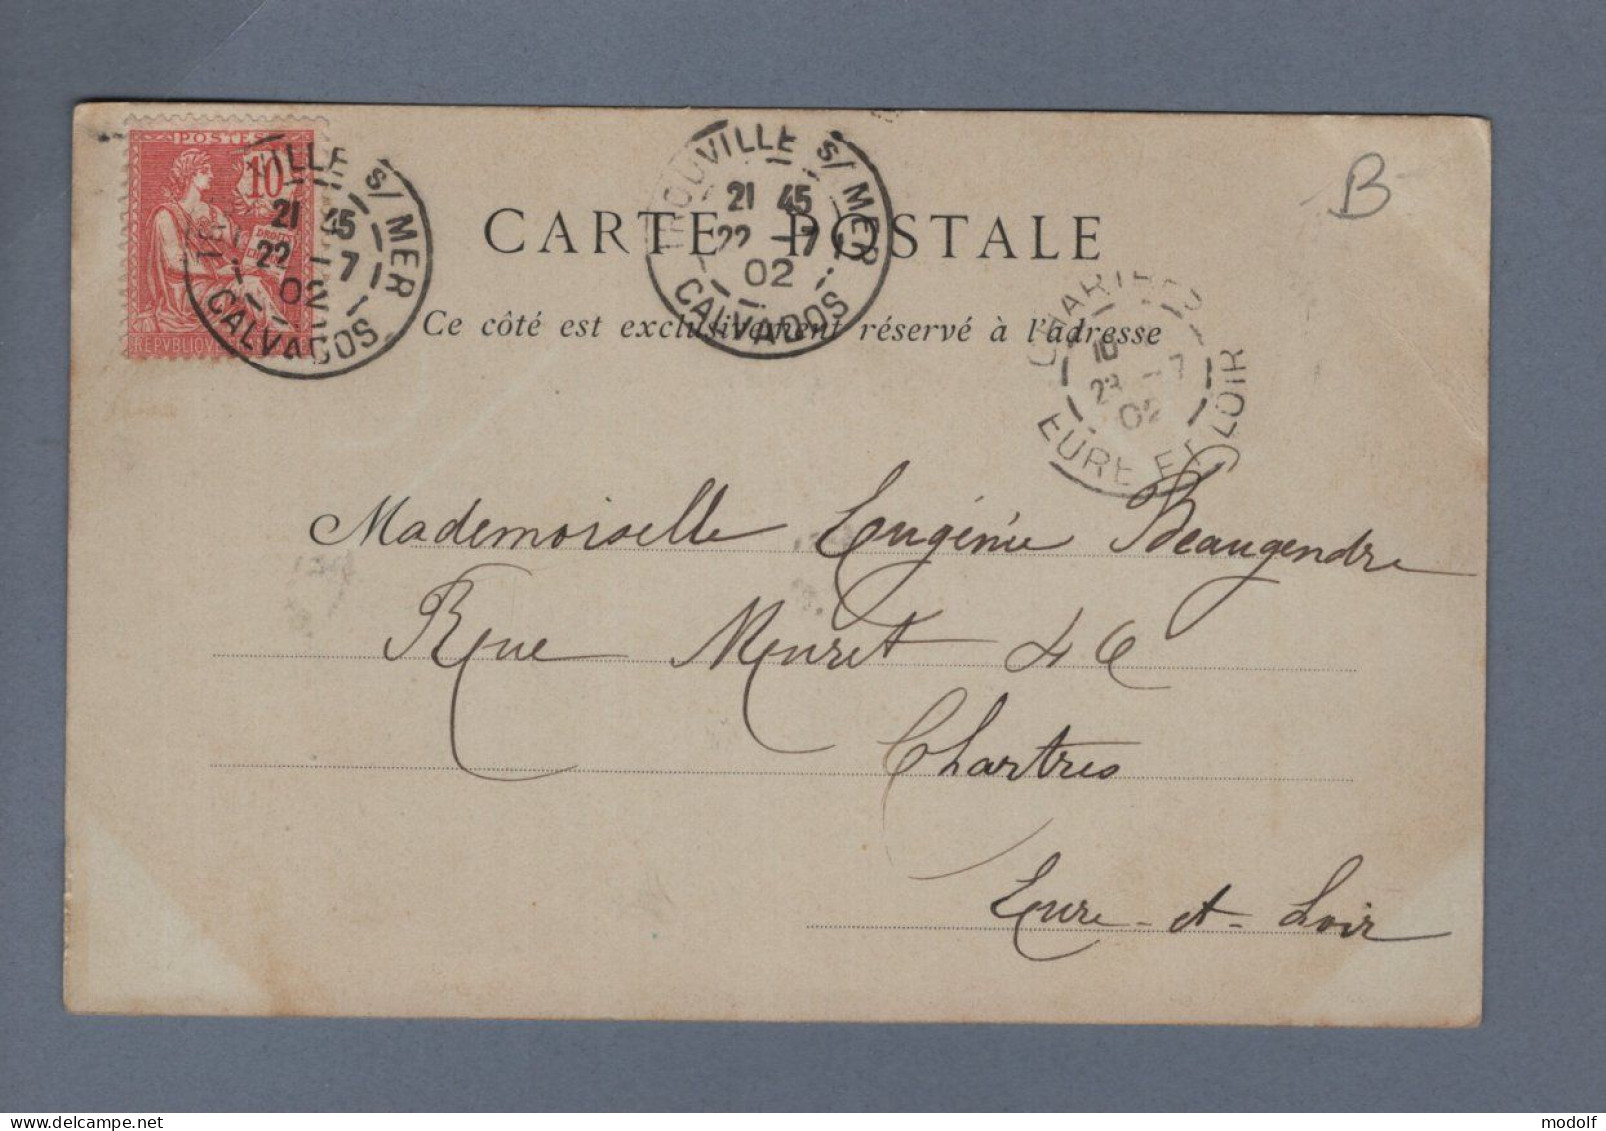 POSTES
10
TROUVILLE S/ MER
21 45
22 - 7
02
CALVADOS
TROUVILLE S/ MER
21 45
22 - 7
02
CALVADOS
B
CARTE POSTALE
Ce côté est exclusivement réservé à l'adresse
CHARTRES
10
23 - 7
02
EURE ET LOIR
Mademoiselle Eugénie Beaugendre
Rue Muret 46
Chartres
Eure-et-Loir
modolf